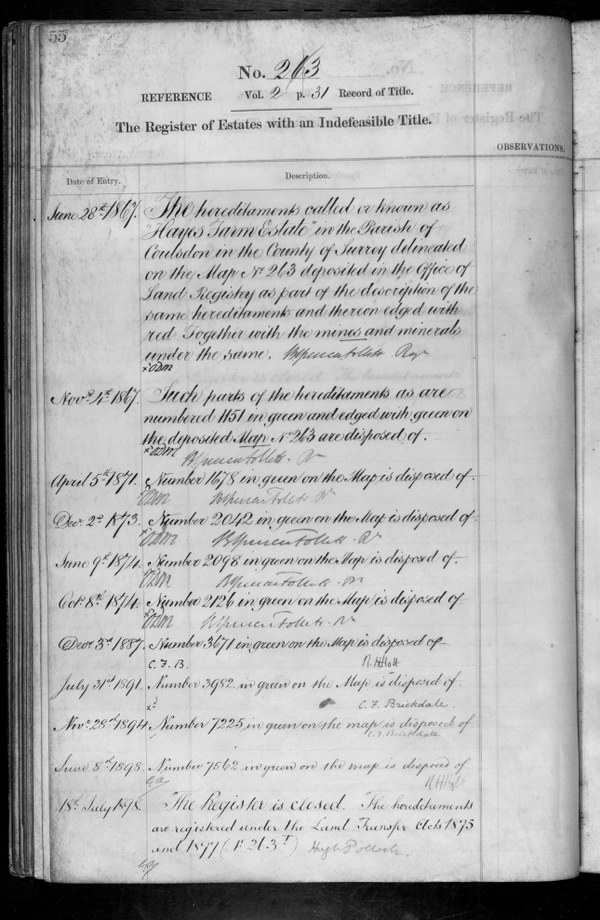 55
No. 263
REFERENCE Vol. 2 p. 31 Record of Title.
The Register of Estates with an Indefeasible Title.
OBSERVATIONS.
Date of Entry. Description.
June 28th 1867. The hereditaments called or known as
"Hayes Farm Estate" in the Parish of
Coulsdon in the County of Surrey delineated
on the Map No 263 deposited in the Office of
Land Registry as part of the description of the
same hereditaments and thereon edged with
red Together with the mines and minerals
under the same. Br Spencer Follett Regr
x ODM
Novr 4th 1867. Such parts of the hereditaments as are
numbered 1151 in green and edged with green on
the deposited Map No 263 are disposed of.
x ODM
Br Spencer Follett. Rr
April 5th 1871. Number 1678 in green on the Map is disposed of.
ODM Br Spencer Follett Rr
Decr 2d 1873. Number 2042 in green on the Map is disposed of.
ODM Br Spencer Follett. Rr
June 9th 1874. Number 2098 in green on the Map is disposed of.
ODM Br Spencer Follett. Rr
Octr 8th 1874. Number 2126 in green on the Map is disposed of
ODM Br Spencer Follett. Rr
Decr 3d 1887. Number 3671 in green on the Map is disposed of.
C. F. B. R H Holt
July 31st 1891. Number 3982 in green on the Map is disposed of.
C. F. Brickdale.
Novr 28th 1894. Number 7225 in green on the map is disposed of.
C. F. Brickdale
June 8th 1898. Number 7562 in green on the map is disposed of
R H Holt
18th July 1898. The Register is closed. The hereditaments
are registered under the Land Transfer Acts 1875
and 1897 (P. 363 T) Hugh Pollock.